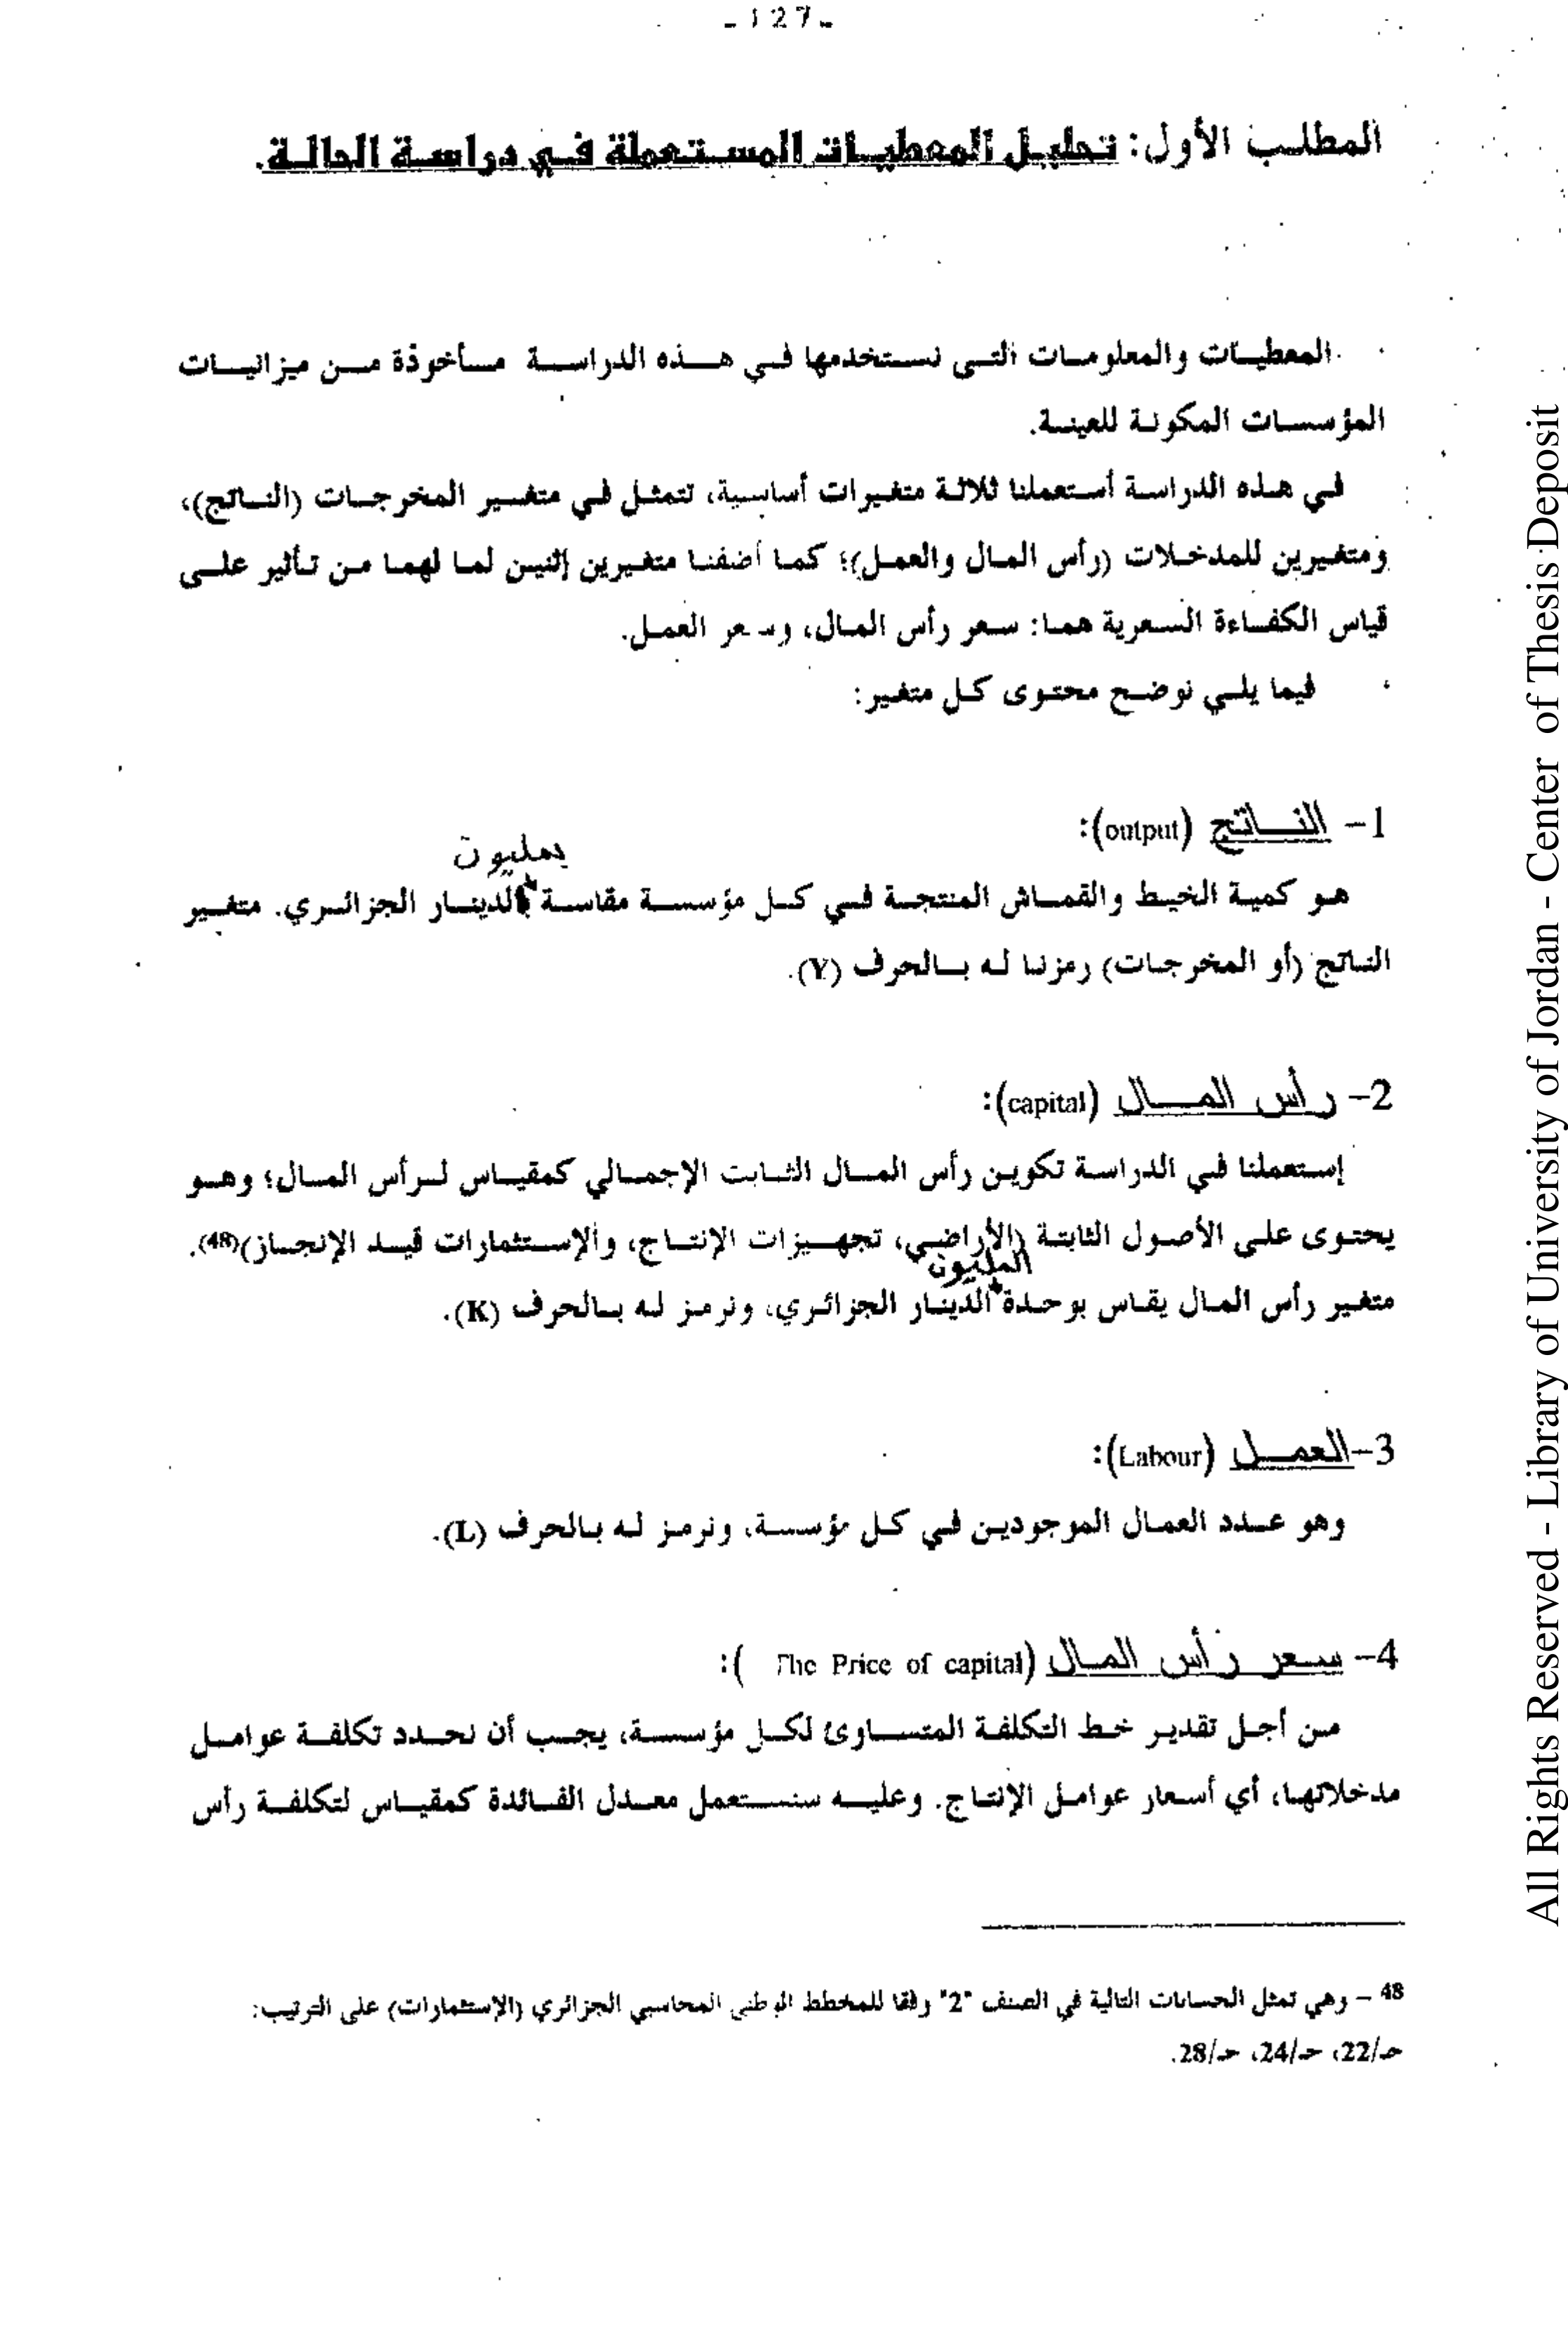 -127-
المطلب الأول: تحليل المعطيات المستعملة في دراسة الحالة.
المعطيات والمعلومات التي نستخدمها في هذه الدراسة مأخوذة من ميزانيات
المؤسسات المكونة للعينة.
في هذه الدراسة أستعملنا ثلاثة متغيرات أساسية، تتمثل في متغير المخرجات (الناتج)،
ومتغيرين للمدخلات (رأس المال والعمل)؛ كما أضفنا متغيرين إثنين لما لهما من تأثير على
قياس الكفاءة السعرية هما: سعر رأس المال، وسعر العمل.
فيما يلي نوضح محتوى كل متغير:
1- الناتج (output):
بمليون
هو كمية الخيط والقماش المنتجة في كل مؤسسة مقاسة بالدينار الجزائري. متغير
الناتج (أو المخرجات) رمزنا له بالحرف (Y).
2- رأس المال (capital):
إستعملنا في الدراسة تكوين رأس المال الثابت الإجمالي كمقياس لرأس المال؛ وهو
يحتوى على الأصول الثابتة (الأراضي، تجهيزات الإنتاج، والإستثمارات قيد الإنجاز)(48).
المليون
متغير رأس المال يقاس بوحدة الدينار الجزائري، ونرمز له بالحرف (K).
3-العمل (Labour):
وهو عدد العمال الموجودين في كل مؤسسة، ونرمز له بالحرف (L).
4- سعر رأس المال (The Price of capital ):
من أجل تقدير خط التكلفة المتساوئ لكل مؤسسة، يجب أن نحدد تكلفة عوامل
مدخلاتها، أي أسعار عوامل الإنتاج. وعليه سنستعمل معدل الفائدة كمقياس لتكلفة رأس
48 – وهي تمثل الحسابات التالية في الصنف "2" وفقا للمخطط الوطني المحاسبي الجزائري (الإستثمارات) على الترتيب:
حـ/22، حـ/24، حـ/28.
All Rights Reserved - Library of University of Jordan - Center of Thesis Deposit